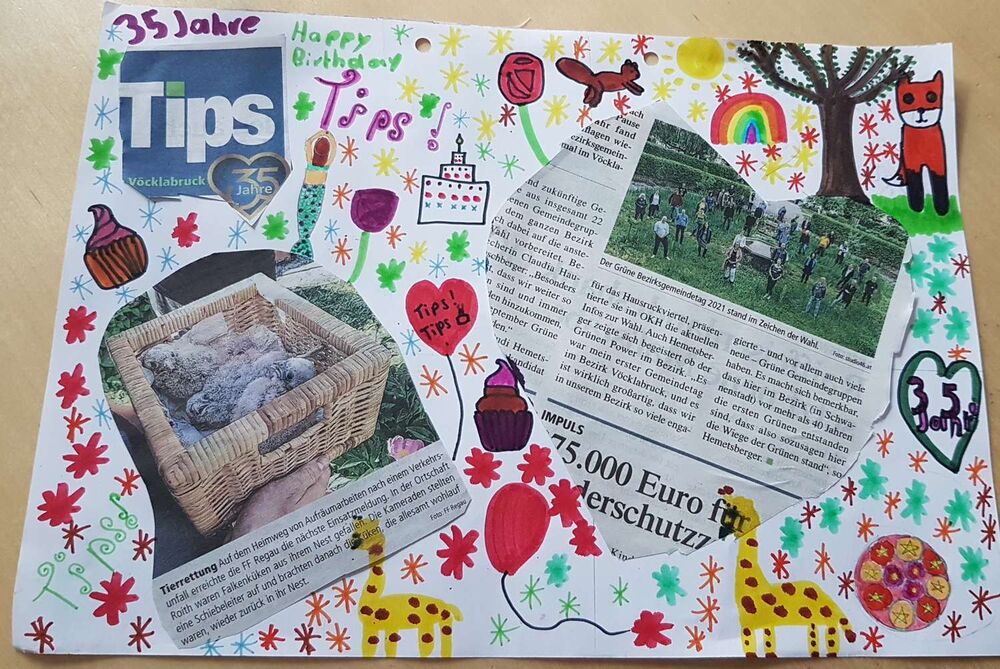 35 Jahre
Happy
Birthday
Tips!
Tips
Vöcklabruck
35
Jahre
Tips!
Tips
35
Jahre
Tipsss
Tierrettung Auf dem Heimweg von Aufräumarbeiten nach einem Verkehrs-
unfall erreichte die FF Regau die nächste Einsatzmeldung. In der Ortschaft
Roith waren Falkenküken aus ihrem Nest gefallen. Die Kameraden stellten
eine Schiebeleiter auf und brachten danach die Küken, die allesamt wohlauf
waren, wieder zurück in ihr Nest.
Foto: FF Regau
Pause
hr fand
flagen wie-
ezirksgemein-
mal im Vöckla-
und zukünftige Ge-
aus insgesamt 22
enen Gemeindegrup-
dem ganzen Bezirk
dabei auf die anste-
Wahl vorbereitet. Be-
cherin Claudia Hau-
schberger: „Besonders
t, dass wir weiter so
n sind und immer
den hinzukommen,
eptember Grüne
den.“
di Hemets-
kandidat
Der Grüne Bezirksgemeindetag 2021 stand im Zeichen der Wahl.
Foto: studio46.at
für das Hausruckviertel, präsen-
tierte sie im OKH die aktuellen
Infos zur Wahl. Auch Hemetsber-
ger zeigte sich begeistert ob der
Grünen Power im Bezirk. „Es
war mein erster Gemeindetag
im Bezirk Vöcklabruck, und es
ist wirklich großartig, dass wir
in unserem Bezirk so viele enga-
gierte – und vor allem auch viele
neue – Grüne Gemeindegruppen
haben. Es macht sich bemerkbar,
dass hier im Bezirk (in Schwa-
nenstadt) vor mehr als 40 Jahren
die ersten Grünen entstanden
sind, dass also sozusagen hier
die Wiege der Grünen stand“, so
Hemetsberger.
IMPULS
75.000 Euro für
derschutzz